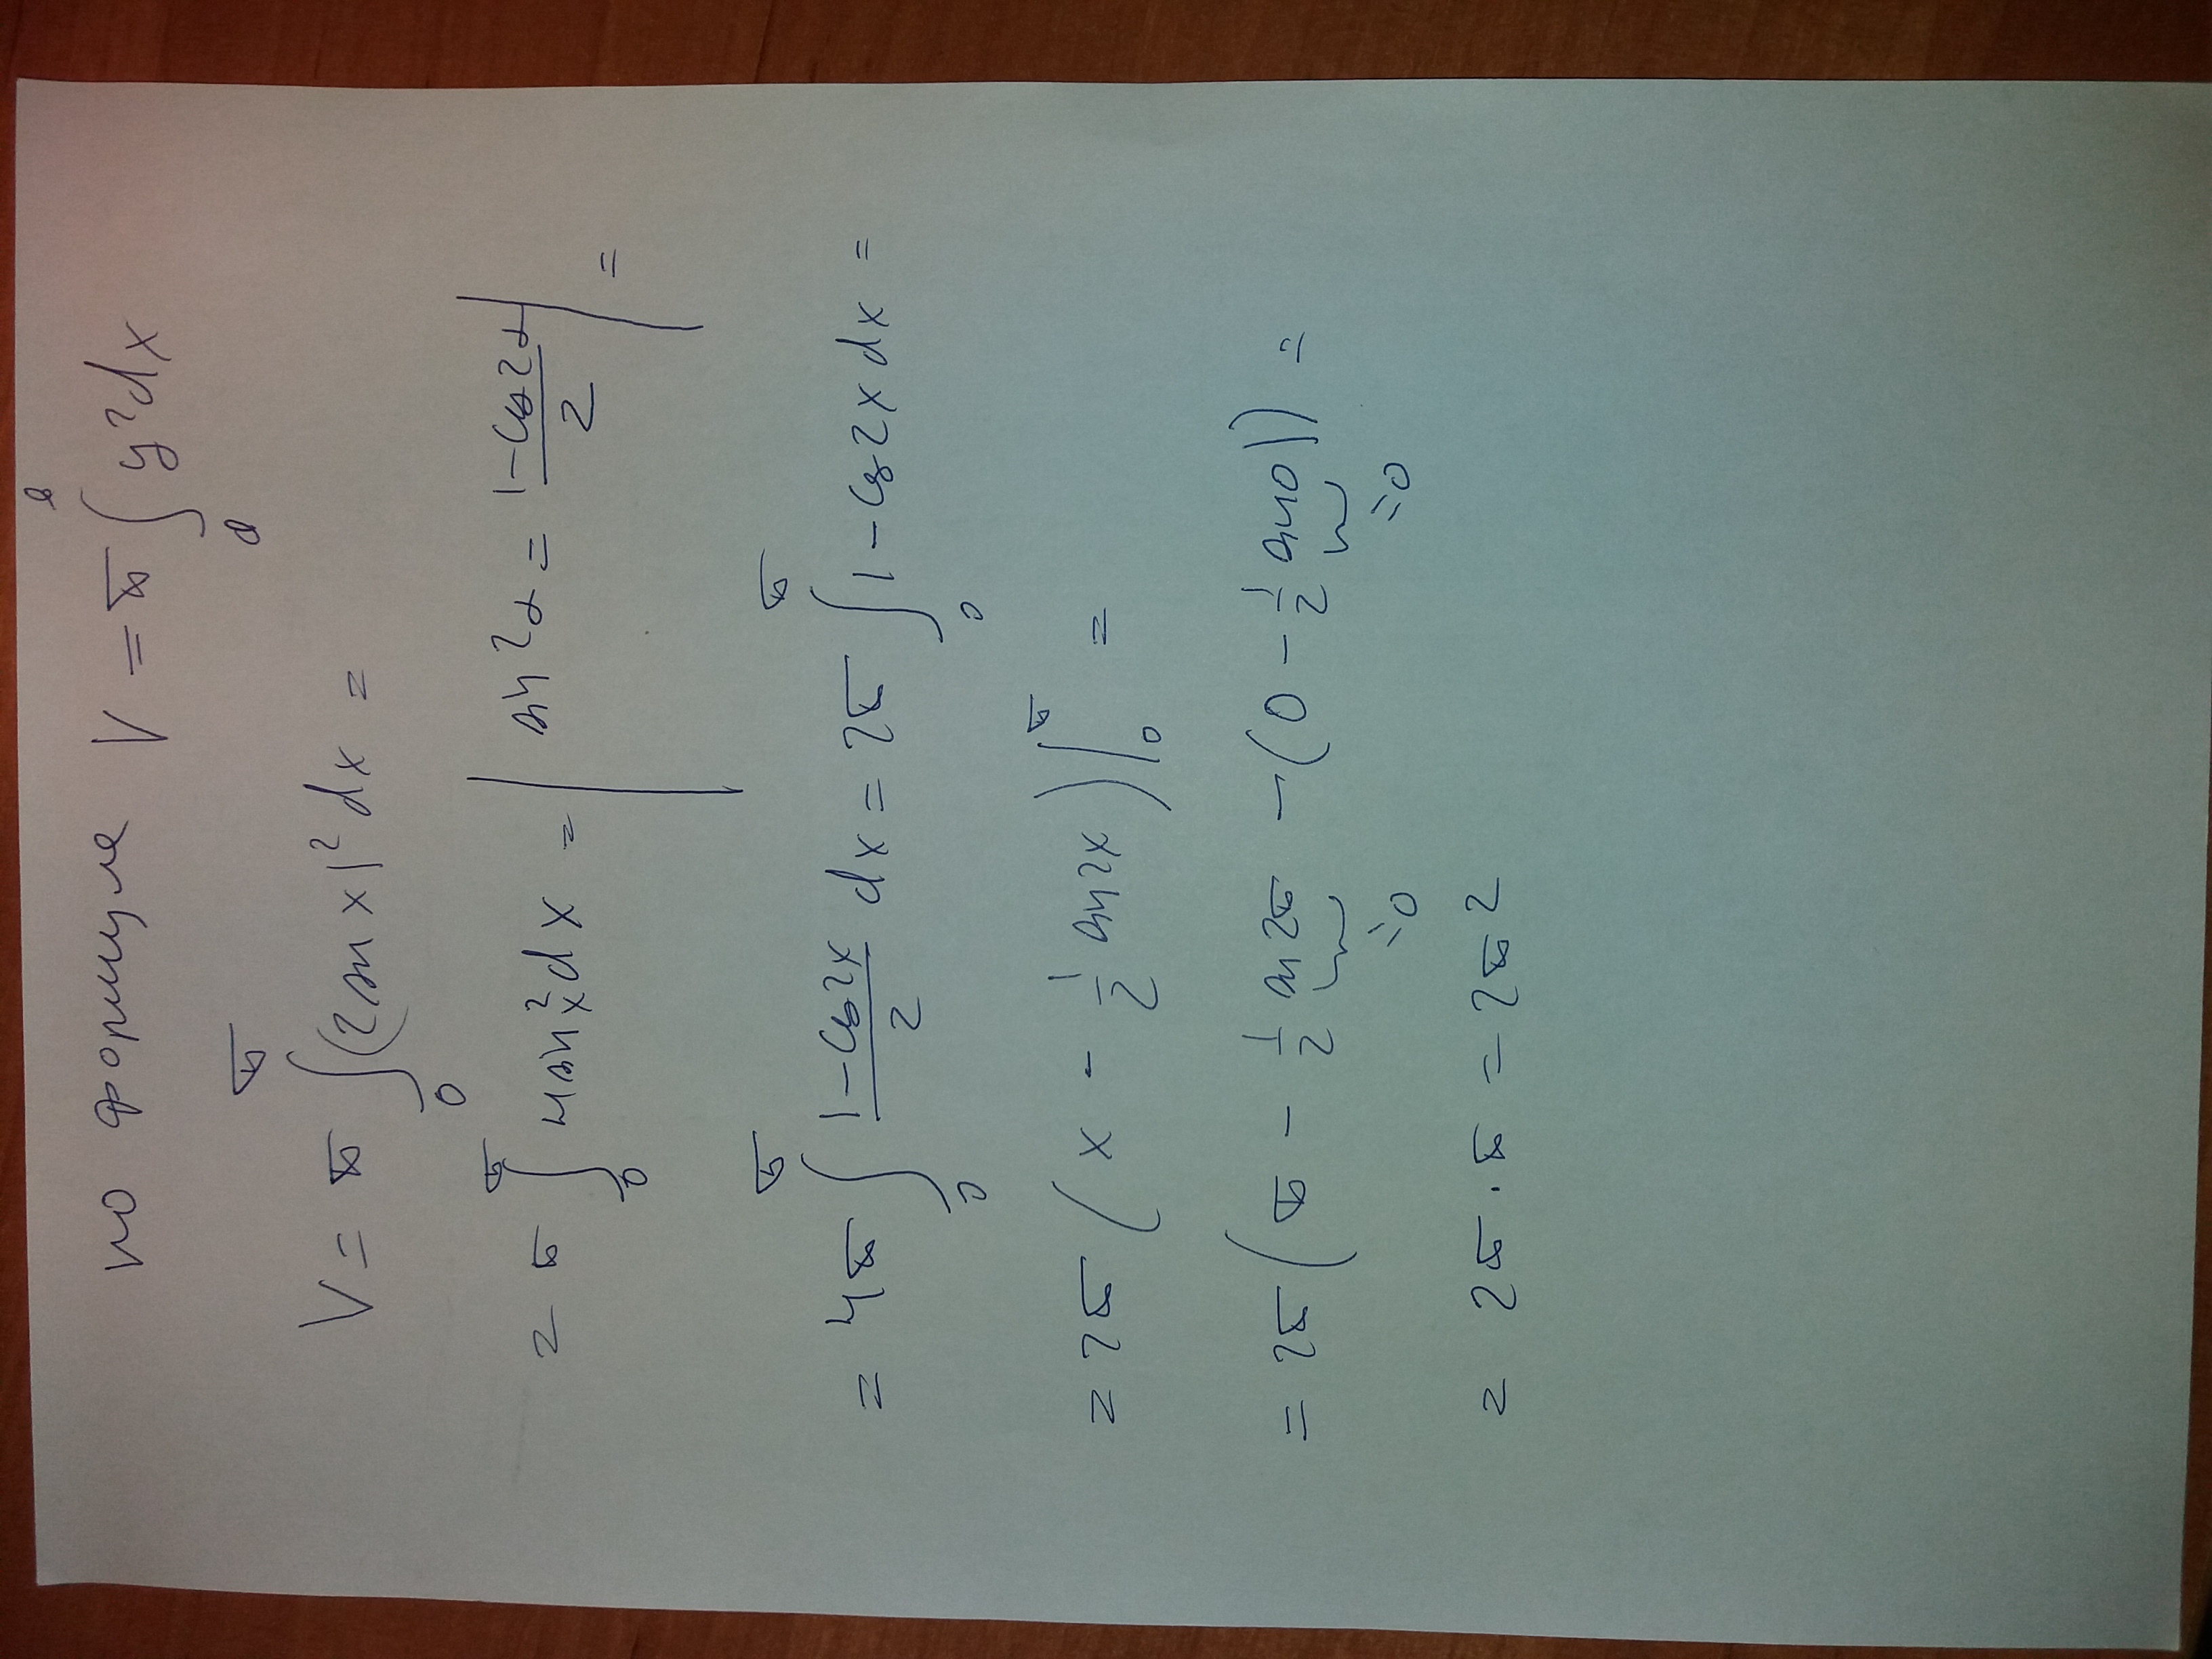 по формуле V = π ∫ₐᵇ y² dx
V = π ∫₀^π (2 sin x)² dx =
= π ∫₀^π 4 sin² x dx = | sin² α = (1 - cos 2α)/2 | =
= 4π ∫₀^π (1 - cos 2x)/2 dx = 2π ∫₀^π 1 - cos 2x dx =
= 2π (x - 1/2 sin 2x) |₀^π =
= 2π (π - 1/2 sin 2π - (0 - 1/2 sin 0)) =
=0 =0
= 2π · π = 2π²